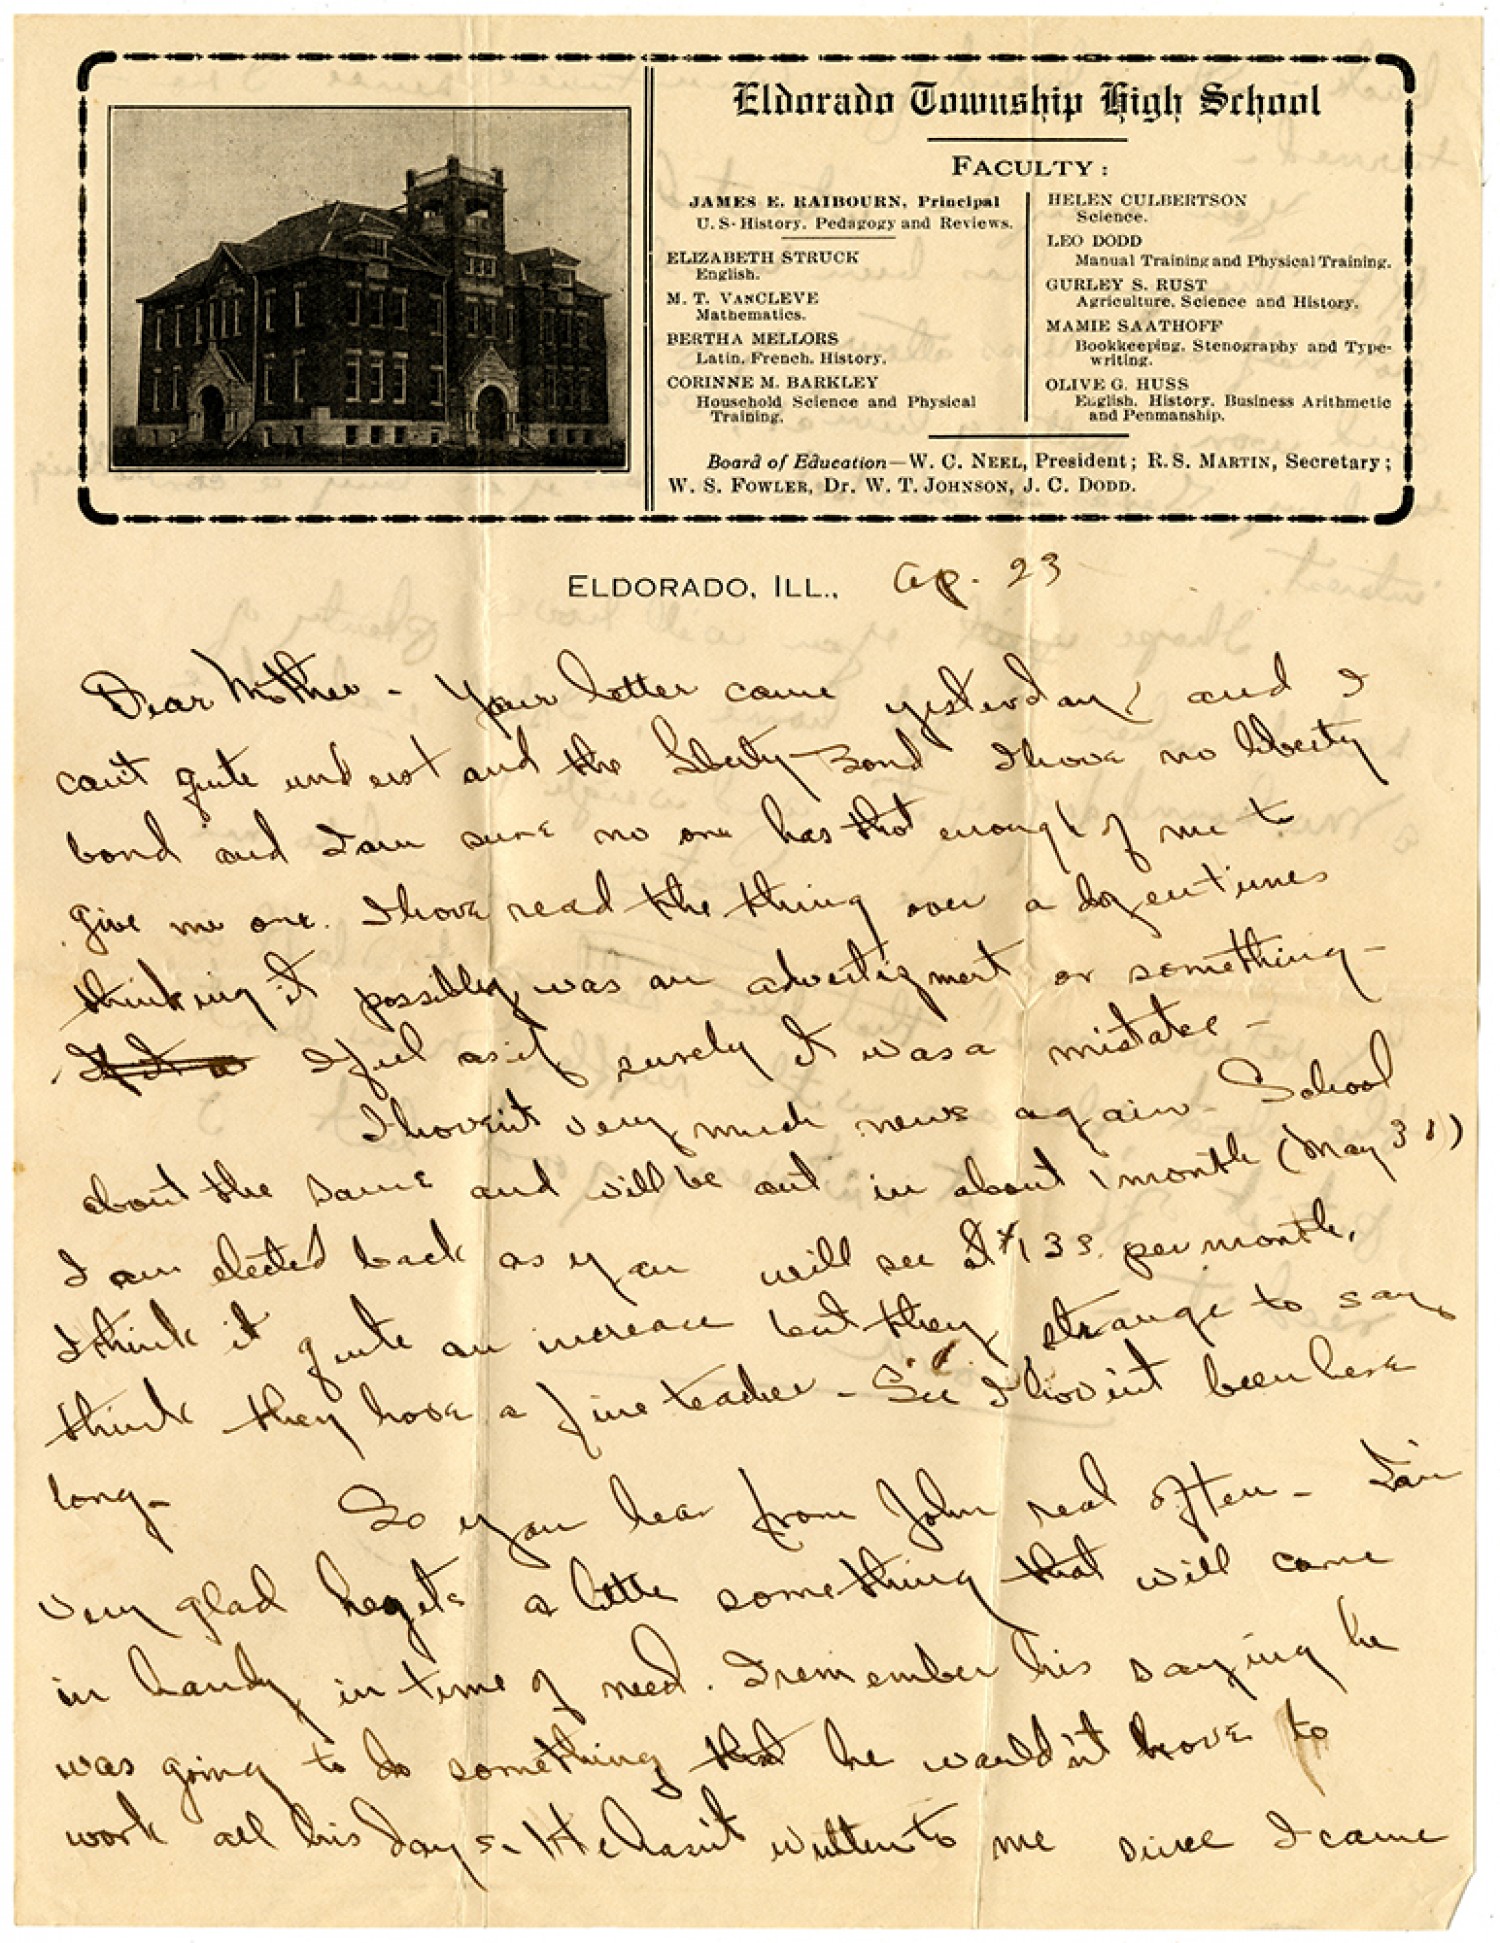 Eldorado Township High School
FACULTY:
JAMES E. RAIBOURN, Principal
U. S. History, Pedagogy and Reviews.
ELIZABETH STRUCK
English.
M. T. VANCLEVE
Mathematics.
BERTHA MELLORS
Latin, French, History.
CORINNE M. BARKLEY
Household Science and Physical
Training.
HELEN CULBERTSON
Science.
LEO DODD
Manual Training and Physical Training.
GURLEY S. RUST
Agriculture, Science and History.
MAMIE SAATHOFF
Bookkeeping, Stenography and Type-
writing.
OLIVE G. HUSS
English, History, Business Arithmetic
and Penmanship.
Board of Education—W. C. NEEL, President; R. S. MARTIN, Secretary;
W. S. FOWLER, DR. W. T. JOHNSON, J. C. DODD.
ELDORADO, ILL., Ap. 23
Dear Mother - Your letter came yesterday, and I
can't quite understand the liberty-Bond I have no liberty
bond and I am sure no one has thot enough of me to
give me one. I have read the thing over a dozen times
thinking it possibly was an advertizment or something -
I feel as if surely it was a mistake -
I haven't very much news again - School
about the same and will be out in about 1 month (May 31)
I am elected back as you will see at $135. per month.
I think it quite an increase but they, strange to say,
think they have a fine teacher - See I haven't been here
long -
So you hear from John real often - I am
very glad he gets a little something that will come
in handy in time of need. I remember his saying he
was going to do something that he wouldn't have to
work all his days - He hasn't written to me since I came